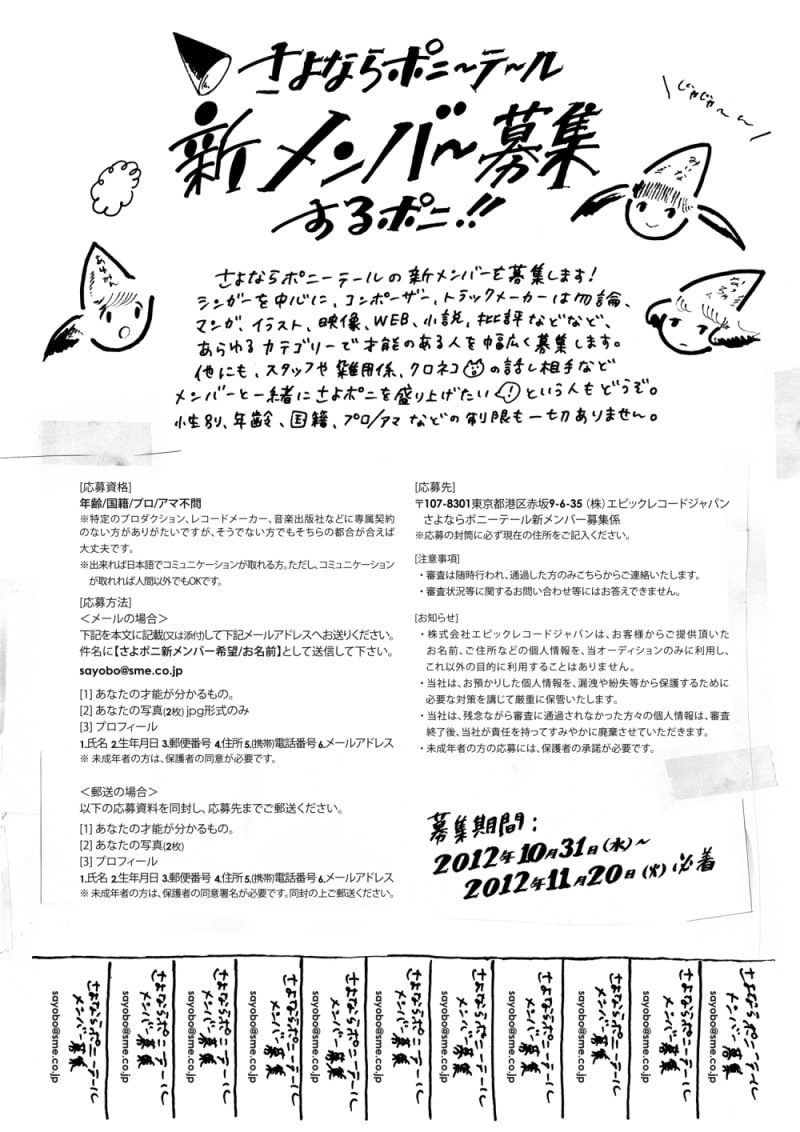 さよならポニーテール
新メンバー募集
するポニ!!
じゃじゃ〜〜ん
みぃな
あゆみん
なっちゃん
さよならポニーテールの新メンバーを募集します!
シンガーを中心に、コンポーザー、トラックメーカーは勿論、
マンガ、イラスト、映像、WEB、小説、批評などなど、
あらゆるカテゴリーで才能のある人を幅広く募集します。
他にも、スタッフや雑用係、クロネコの話し相手など
メンバーと一緒にさよポニを盛り上げたい!という人もどうぞ。
性別、年齢、国籍、プロ/アマなどの制限も一切ありません。
[応募資格]
年齢/国籍/プロ/アマ不問
※特定のプロダクション、レコードメーカー、音楽出版社などに専属契約
のない方がありがたいですが、そうでない方でもそちらの都合が合えば
大丈夫です。
※出来れば日本語でコミュニケーションが取れる方。ただし、コミュニケーション
が取れれば人間以外でもOKです。
[応募方法]
<メールの場合>
下記を本文に記載(又は添付)して下記メールアドレスへお送りください。
件名に【さよポニ新メンバー希望/お名前】として送信して下さい。
sayobo@sme.co.jp
[1] あなたの才能が分かるもの。
[2] あなたの写真(2枚) jpg形式のみ
[3] プロフィール
1.氏名 2.生年月日 3.郵便番号 4.住所 5.(携帯)電話番号 6.メールアドレス
※ 未成年者の方は、保護者の同意が必要です。
<郵送の場合>
以下の応募資料を同封し、応募先までご郵送ください。
[1] あなたの才能が分かるもの。
[2] あなたの写真(2枚)
[3] プロフィール
1.氏名 2.生年月日 3.郵便番号 4.住所 5.(携帯)電話番号 6.メールアドレス
※ 未成年者の方は、保護者の同意署名が必要です。同封の上ご郵送ください。
[応募先]
〒107-8301東京都港区赤坂9-6-35 (株)エピックレコードジャパン
さよならポニーテール新メンバー募集係
※応募の封筒に必ず現在の住所をご記入ください。
[注意事項]
・審査は随時行われ、通過した方のみこちらからご連絡いたします。
・審査状況等に関するお問い合わせ等にはお答えできません。
[お知らせ]
・株式会社エピックレコードジャパンは、お客様からご提供頂いた
お名前、ご住所などの個人情報を、当オーディションのみに利用し、
これ以外の目的に利用することはありません。
・当社は、お預かりした個人情報を、漏洩や紛失等から保護するために
必要な対策を講じて厳重に保管いたします。
・当社は、残念ながら審査に通過されなかった方々の個人情報は、審査
終了後、当社が責任を持ってすみやかに廃棄させていただきます。
・未成年者の方の応募には、保護者の承諾が必要です。
募集期間:
2012年10月31日(水)〜
2012年11月20日(火)必着
さよならポニーテール
メンバー募集
sayobo@sme.co.jp
さよならポニーテール
メンバー募集
sayobo@sme.co.jp
さよならポニーテール
メンバー募集
sayobo@sme.co.jp
さよならポニーテール
メンバー募集
sayobo@sme.co.jp
さよならポニーテール
メンバー募集
sayobo@sme.co.jp
さよならポニーテール
メンバー募集
sayobo@sme.co.jp
さよならポニーテール
メンバー募集
sayobo@sme.co.jp
さよならポニーテール
メンバー募集
sayobo@sme.co.jp
さよならポニーテール
メンバー募集
sayobo@sme.co.jp
さよならポニーテール
メンバー募集
sayobo@sme.co.jp
さよならポニーテール
メンバー募集
sayobo@sme.co.jp